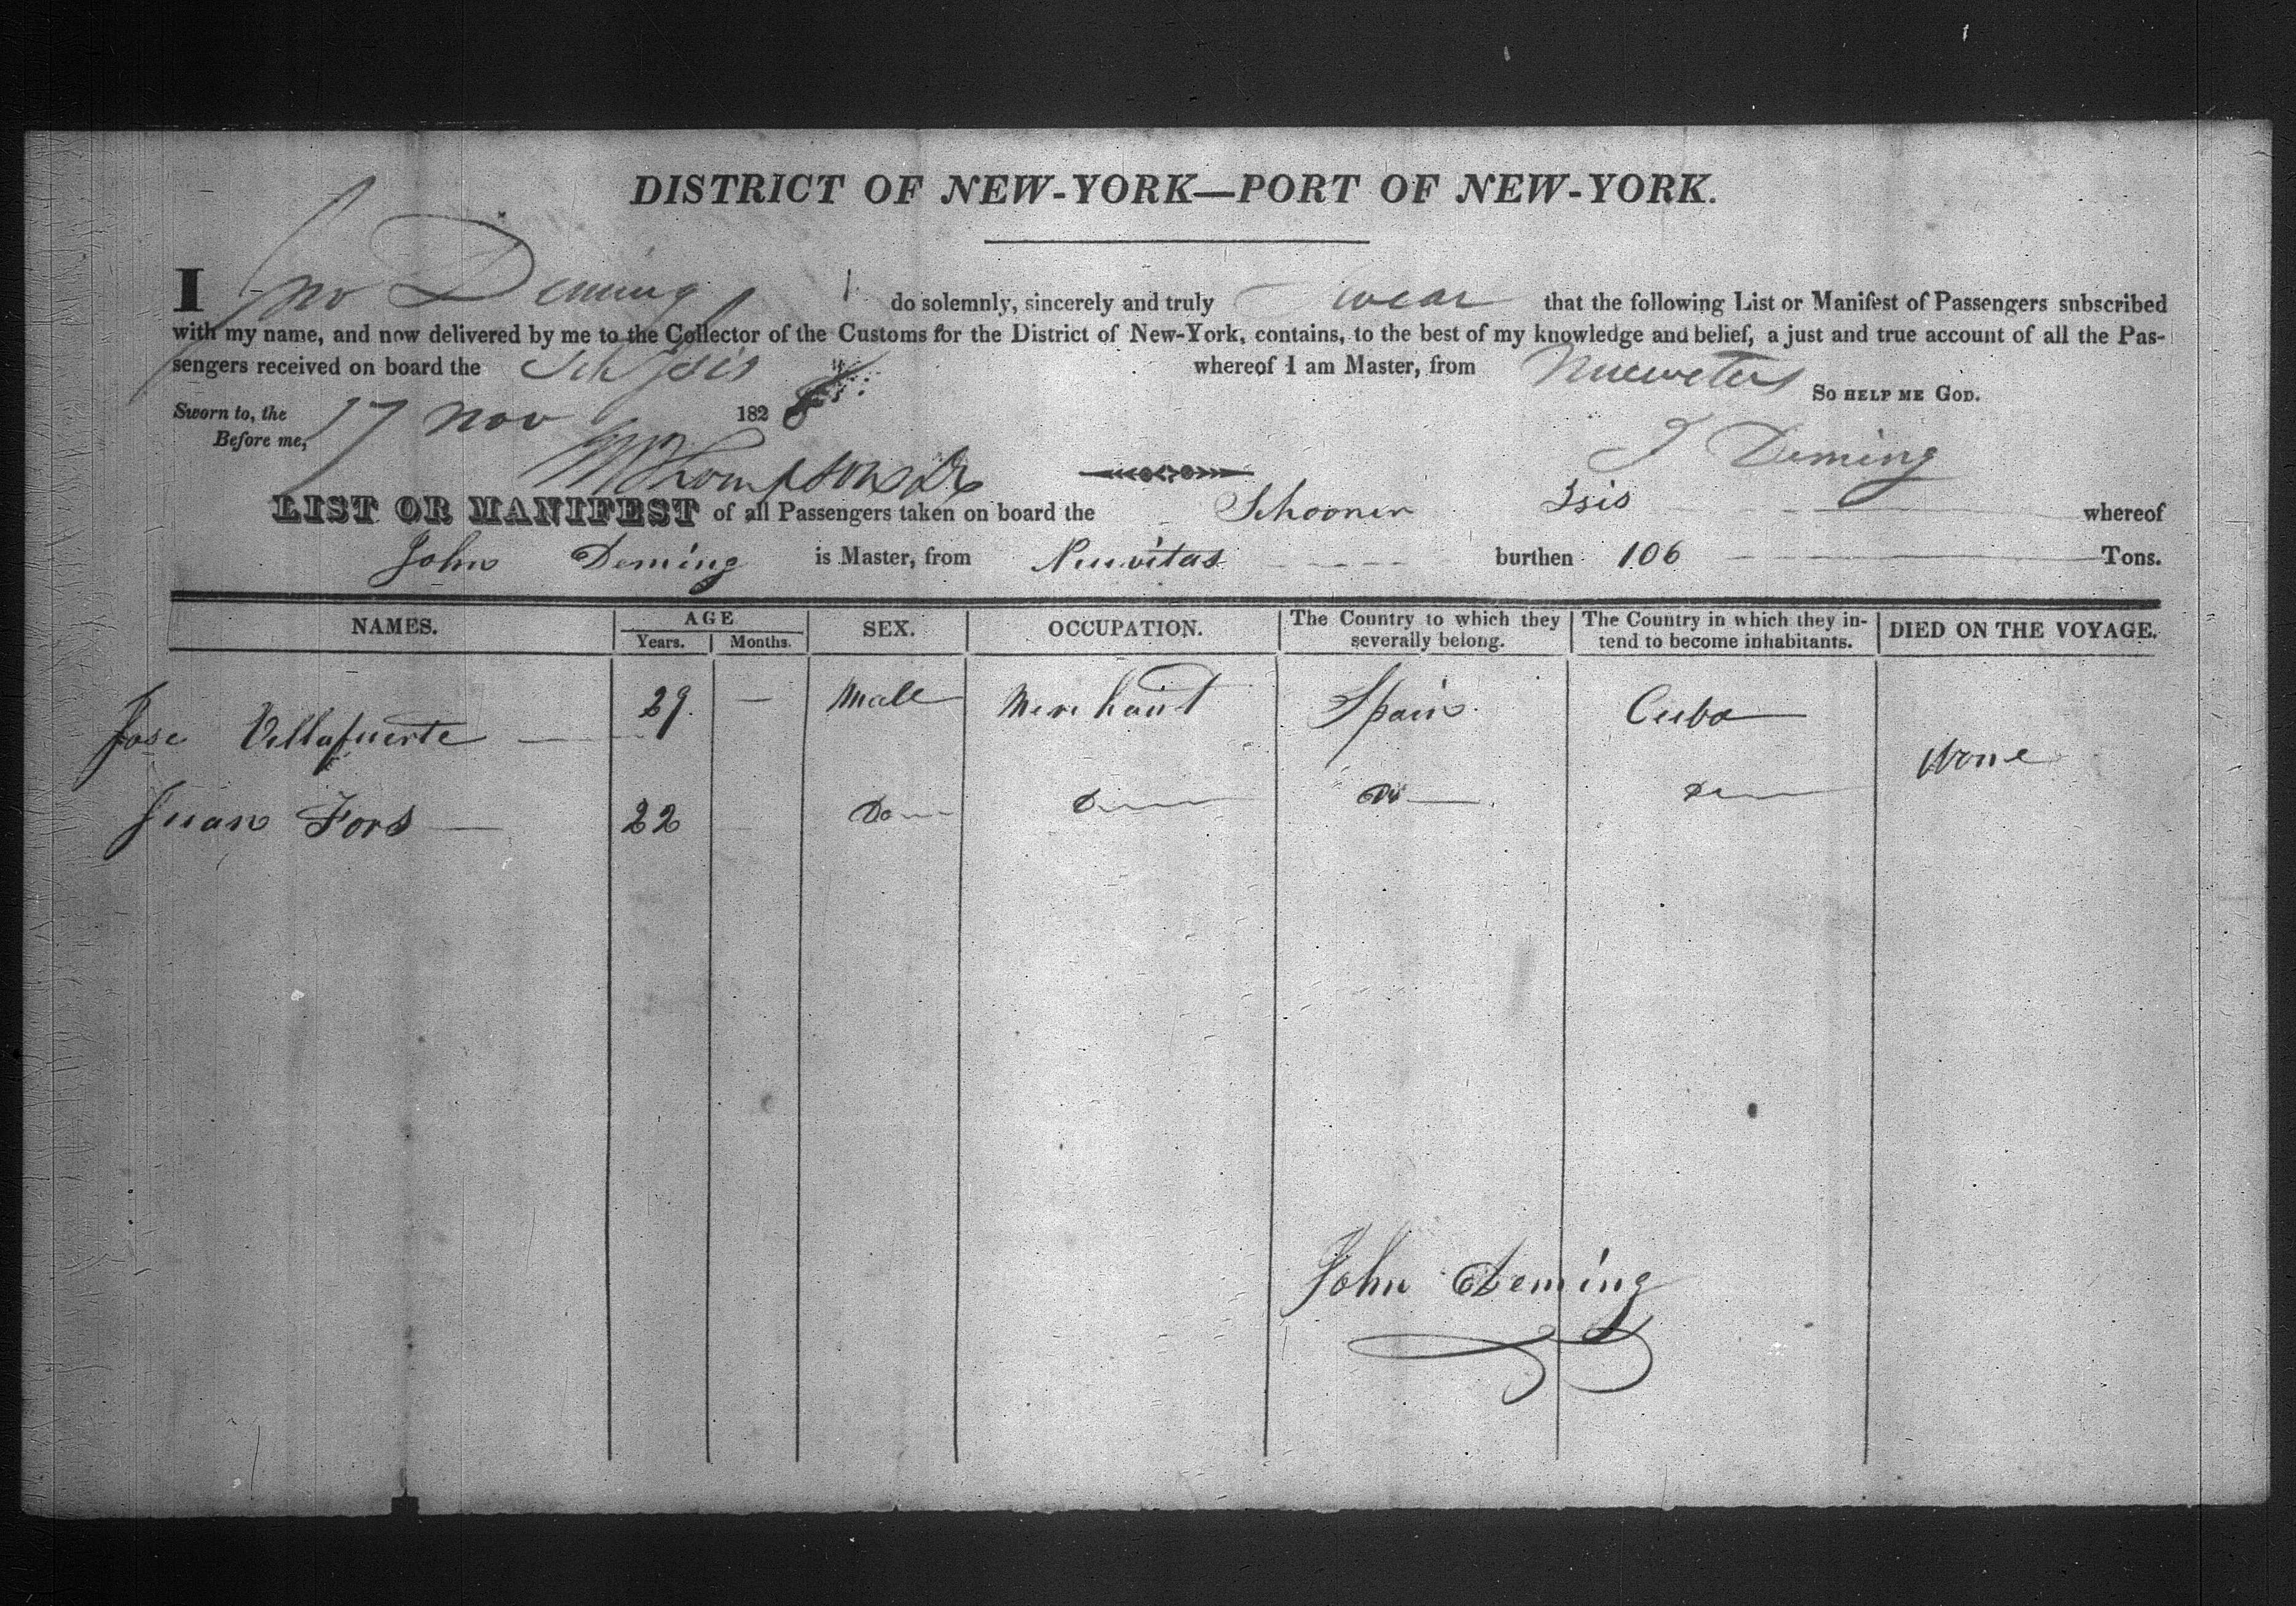 DISTRICT OF NEW-YORK—PORT OF NEW-YORK.
I Jno Deming do solemnly, sincerely and truly swear that the following List or Manifest of Passengers subscribed
with my name, and now delivered by me to the Collector of the Customs for the District of New-York, contains, to the best of my knowledge and belief, a just and true account of all the Pas-
sengers received on board the Sch Isis whereof I am Master, from
So HELP ME GOD.
Sworn to, the 17 Nov 1828
Before me,
J Deming
LIST OR MANIFEST of all Passengers taken on board the Schooner Isis whereof
John Deming is Master, from Nuvitas burthen 106 Tons.
NAMES. AGE Years. Months. SEX. OCCUPATION. The Country to which they severally belong. The Country in which they in-tend to become inhabitants. DIED ON THE VOYAGE.
Jose Villafuerte — 29. — Male Merchant Spain Cuba
None
Juan Fors — 22 Do Do Do Do
John Deming